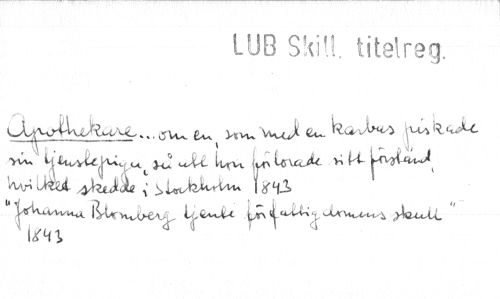 LUB Skill. titelreg.
Apothekare... om en, som med en karbas piskade
sin tjenstepiga, så att hon förlorade sitt förstånd,
hvilket skedde i Stockholm 1843
"Johanna Blomberg tjente för fattigdomens skull"
1843